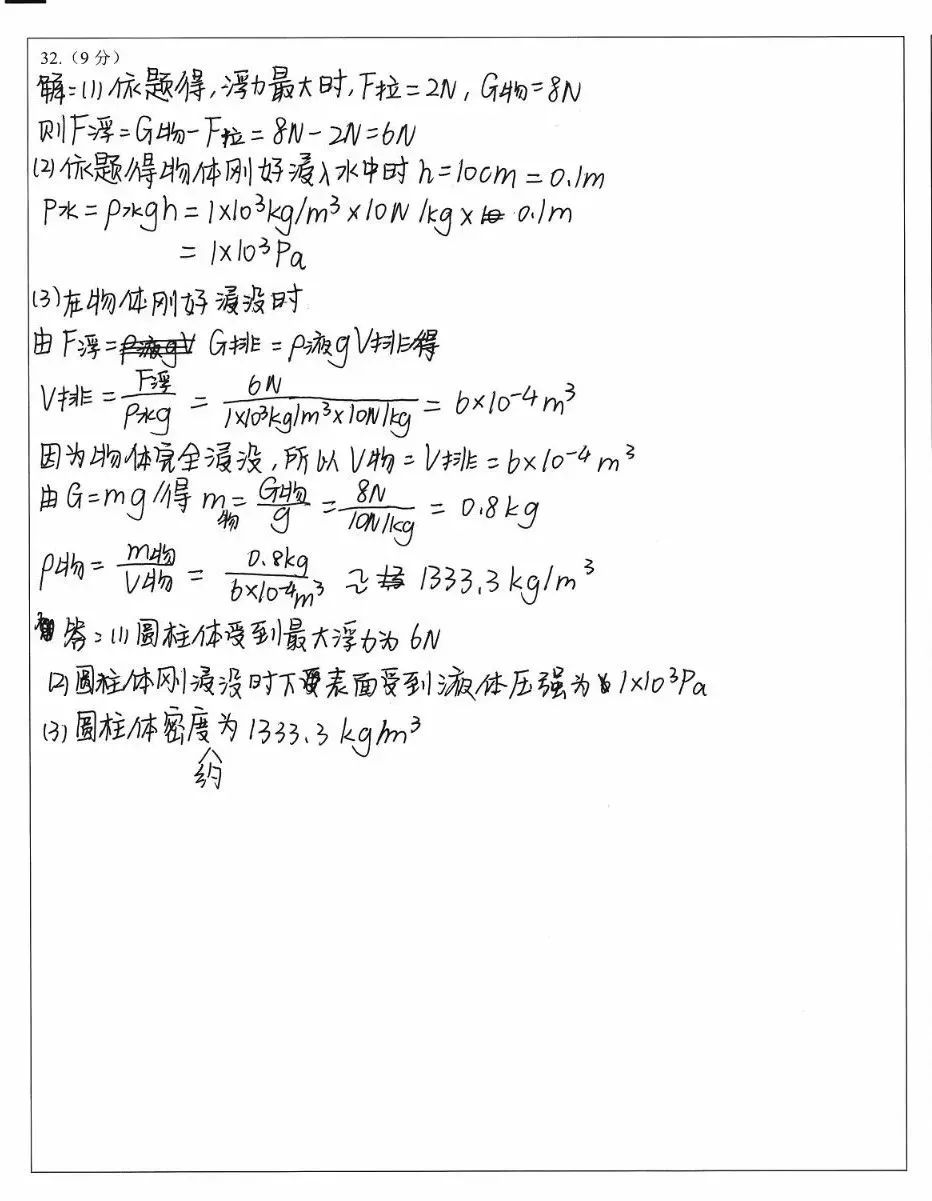 32.（9 分）
解:(1)依题得,浮力最大时,F拉=2N,G物=8N
则F浮=G物-F拉=8N-2N=6N
(2)依题得物体刚好浸入水中时 h=10cm=0.1m
P水=ρ水gh=1×10³kg/m³×10N/kg×0.1m
=1×10³Pa
(3)在物体刚好浸没时
由F浮=G排=ρ液gV排得
V排=F浮/ρ水g=6N/1×10³kg/m³×10N/kg=6×10⁻⁴m³
因为物体完全浸没,所以V物=V排=6×10⁻⁴m³
由G=mg得 m物=G物/g=8N/10N/kg=0.8kg
ρ物=m物/V物=0.8kg/6×10⁻⁴m³≈1333.3kg/m³
答:(1)圆柱体受到最大浮力为6N
(2)圆柱体刚浸没时下表面受到液体压强为1×10³Pa
(3)圆柱体密度约为1333.3kg/m³